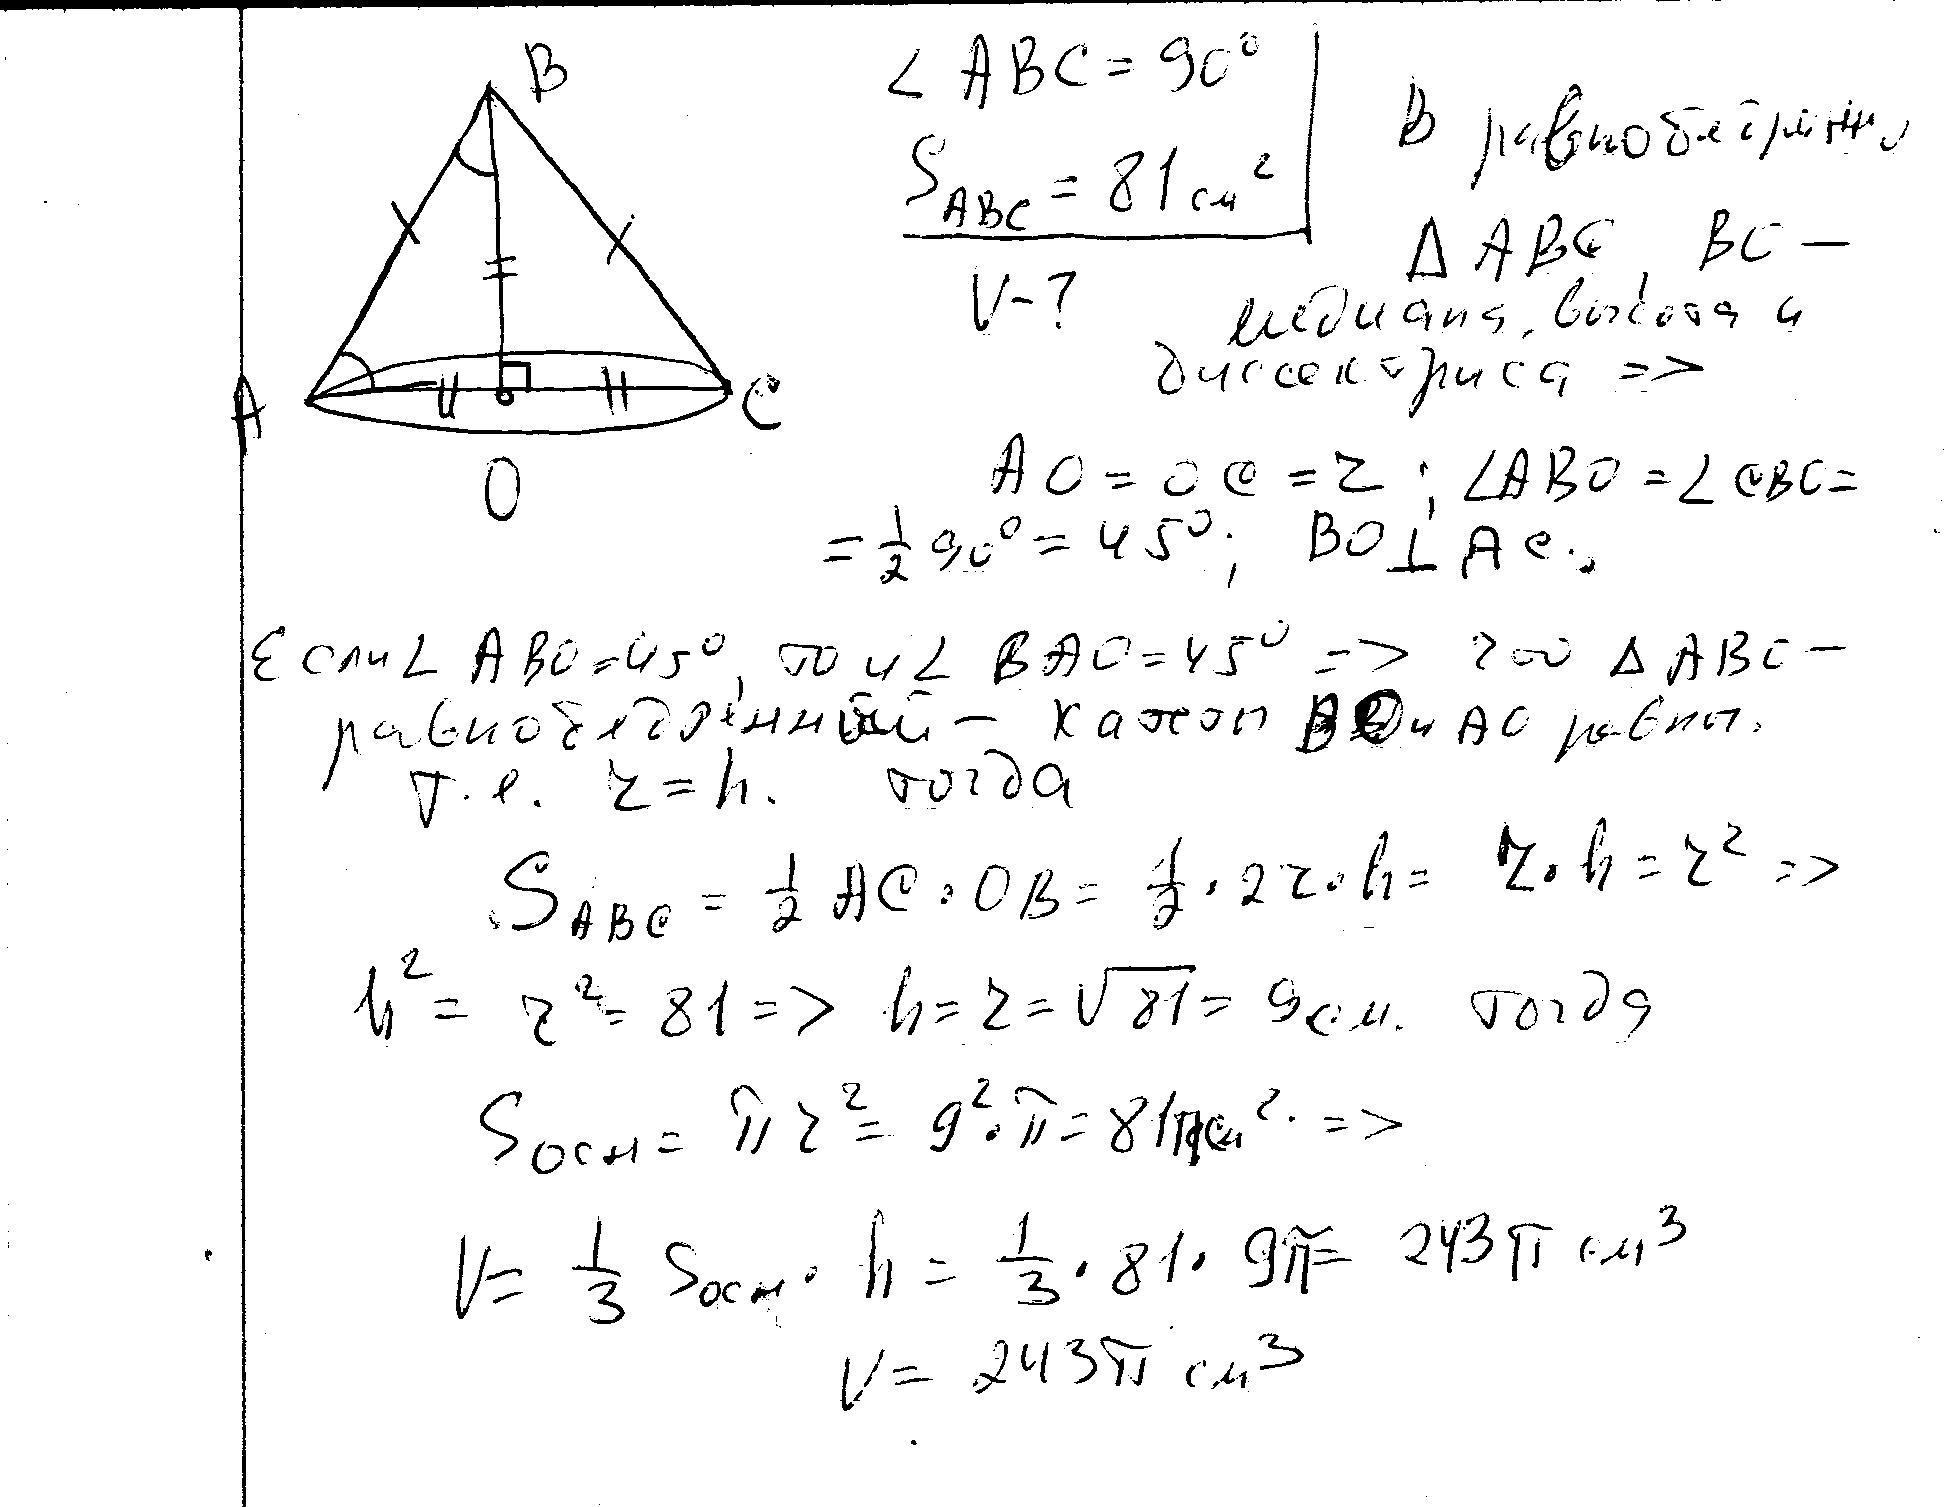 B
A
C
O
∠ ABC = 90°
S ABC = 81 см²
V - ?
В
Δ ABC, BC —
медиана, высота и
биссектриса =>
AO = OC = r ; ∠ABO = ∠CBO =
= 1/2 90° = 45°; BO ⊥ AC.,
Если ∠ ABO = 45°, то и ∠ BAO = 45° => Δ ABO —
равнобедренный — катеты BO и AO равны.
т.е. r = h. тогда
S ABC = 1/2 AC · OB = 1/2 · 2r · h = r · h = r² =>
h² = r² = 81 => h = r = √81 = 9 см. тогда
S осн = π r² = 9² · π = 81π см². =>
V = 1/3 S осн · h = 1/3 · 81 · 9π = 243 π см³
V = 243π см³